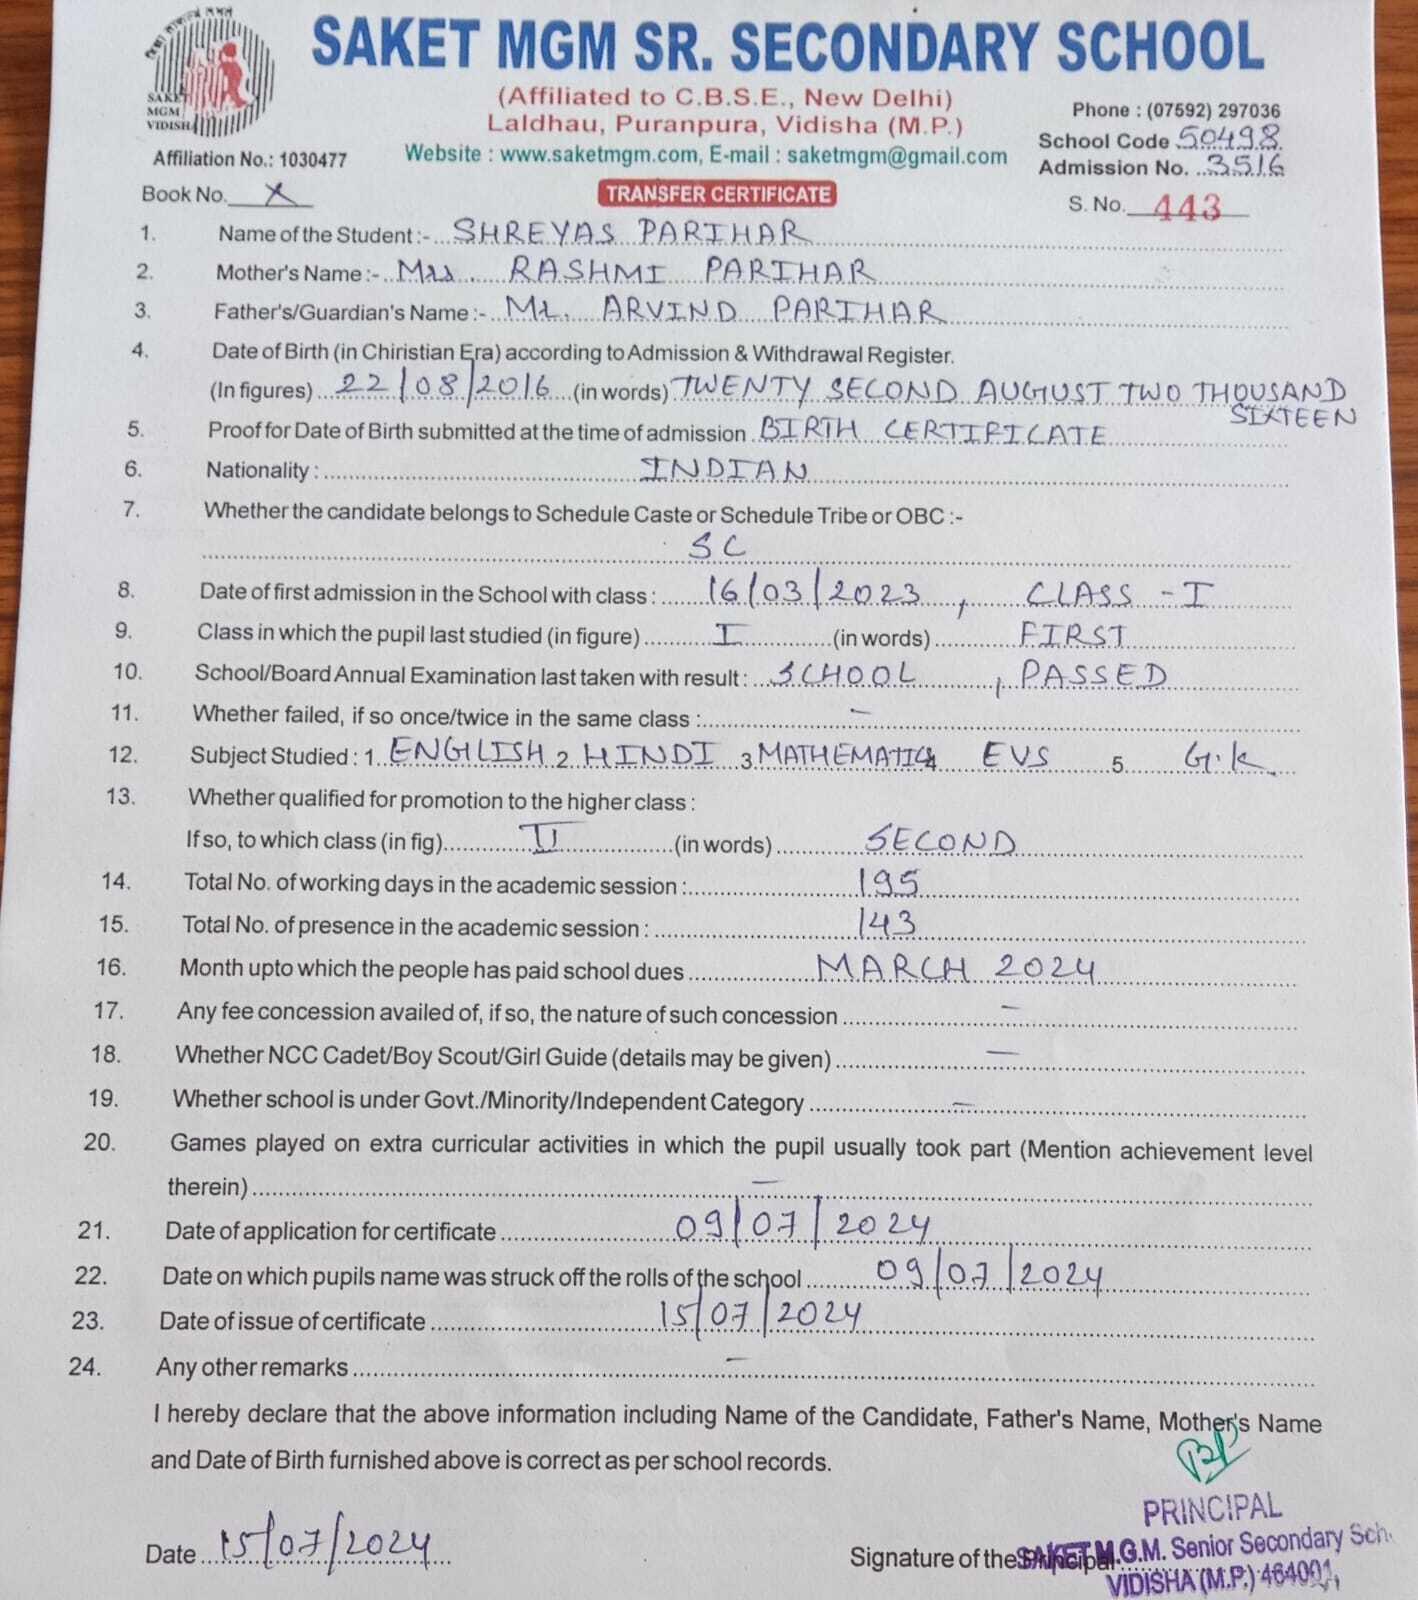 SAKET MGM SR. SECONDARY SCHOOL
SAKET
MGM
VIDISHA
(Affiliated to C.B.S.E., New Delhi)
Laldhau, Puranpura, Vidisha (M.P.)
Phone : (07592) 297036
School Code 50498
Affiliation No.: 1030477
Website : www.saketmgm.com, E-mail : saketmgm@gmail.com
Admission No. 3516
Book No. X
TRANSFER CERTIFICATE
S. No. 443
1. Name of the Student :- SHREYAS PARIHAR
2. Mother's Name :- Mrs. RASHMI PARIHAR
3. Father's/Guardian's Name :- Mr. ARVIND PARIHAR
4. Date of Birth (in Chiristian Era) according to Admission & Withdrawal Register.
(In figures) 22/08/2016 (in words) TWENTY SECOND AUGUST TWO THOUSAND
SIXTEEN
5. Proof for Date of Birth submitted at the time of admission BIRTH CERTIFICATE
6. Nationality : INDIAN
7. Whether the candidate belongs to Schedule Caste or Schedule Tribe or OBC :-
SC
8. Date of first admission in the School with class : 16/03/2023, CLASS - I
9. Class in which the pupil last studied (in figure) I (in words) FIRST
10. School/Board Annual Examination last taken with result : SCHOOL, PASSED
11. Whether failed, if so once/twice in the same class : -
12. Subject Studied : 1. ENGLISH 2 HINDI 3 MATHEMATICS 4 EVS 5 G.K.
13. Whether qualified for promotion to the higher class :
If so, to which class (in fig) II (in words) SECOND
14. Total No. of working days in the academic session : 195
15. Total No. of presence in the academic session : 143
16. Month upto which the people has paid school dues MARCH 2024
17. Any fee concession availed of, if so, the nature of such concession -
18. Whether NCC Cadet/Boy Scout/Girl Guide (details may be given) -
19. Whether school is under Govt./Minority/Independent Category -
20. Games played on extra curricular activities in which the pupil usually took part (Mention achievement level
therein) -
21. Date of application for certificate 09/07/2024
22. Date on which pupils name was struck off the rolls of the school 09/07/2024
23. Date of issue of certificate 15/07/2024
24. Any other remarks -
I hereby declare that the above information including Name of the Candidate, Father's Name, Mother's Name
and Date of Birth furnished above is correct as per school records.
PRINCIPAL
Date 15/07/2024
Signature of the Principal
SAKET M.G.M. Senior Secondary Sch
VIDISHA (M.P.) 464001